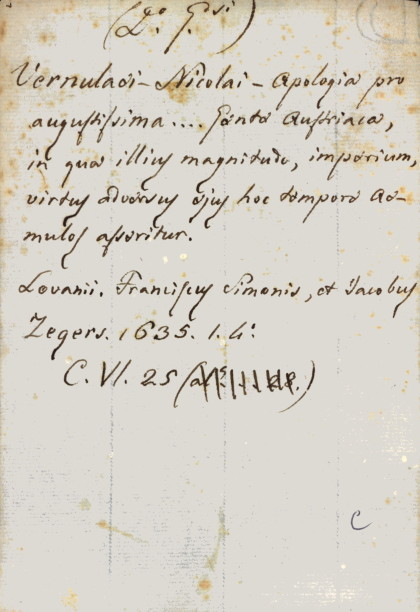 Vernulaei - Nicolai - Apologia pro
augustissima .... Gente Austriaca,
in qua illius magnitudo, imperium,
virtus adversus ejus hoc tempore ae-
mulos asseritur.
Lovanii. Franciscus Simonis, et Jacobus
Zegers. 1635. 1. 4:
C. VI. 25
C